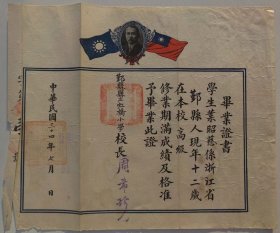 畢業證書
學生葉昭慈係浙江省
鄞縣人現年十二歲
在本校高級
修業期滿成績及格准
予畢業此證
鄞縣縣立虹橋小學校長
中華民國三十四年七月 日